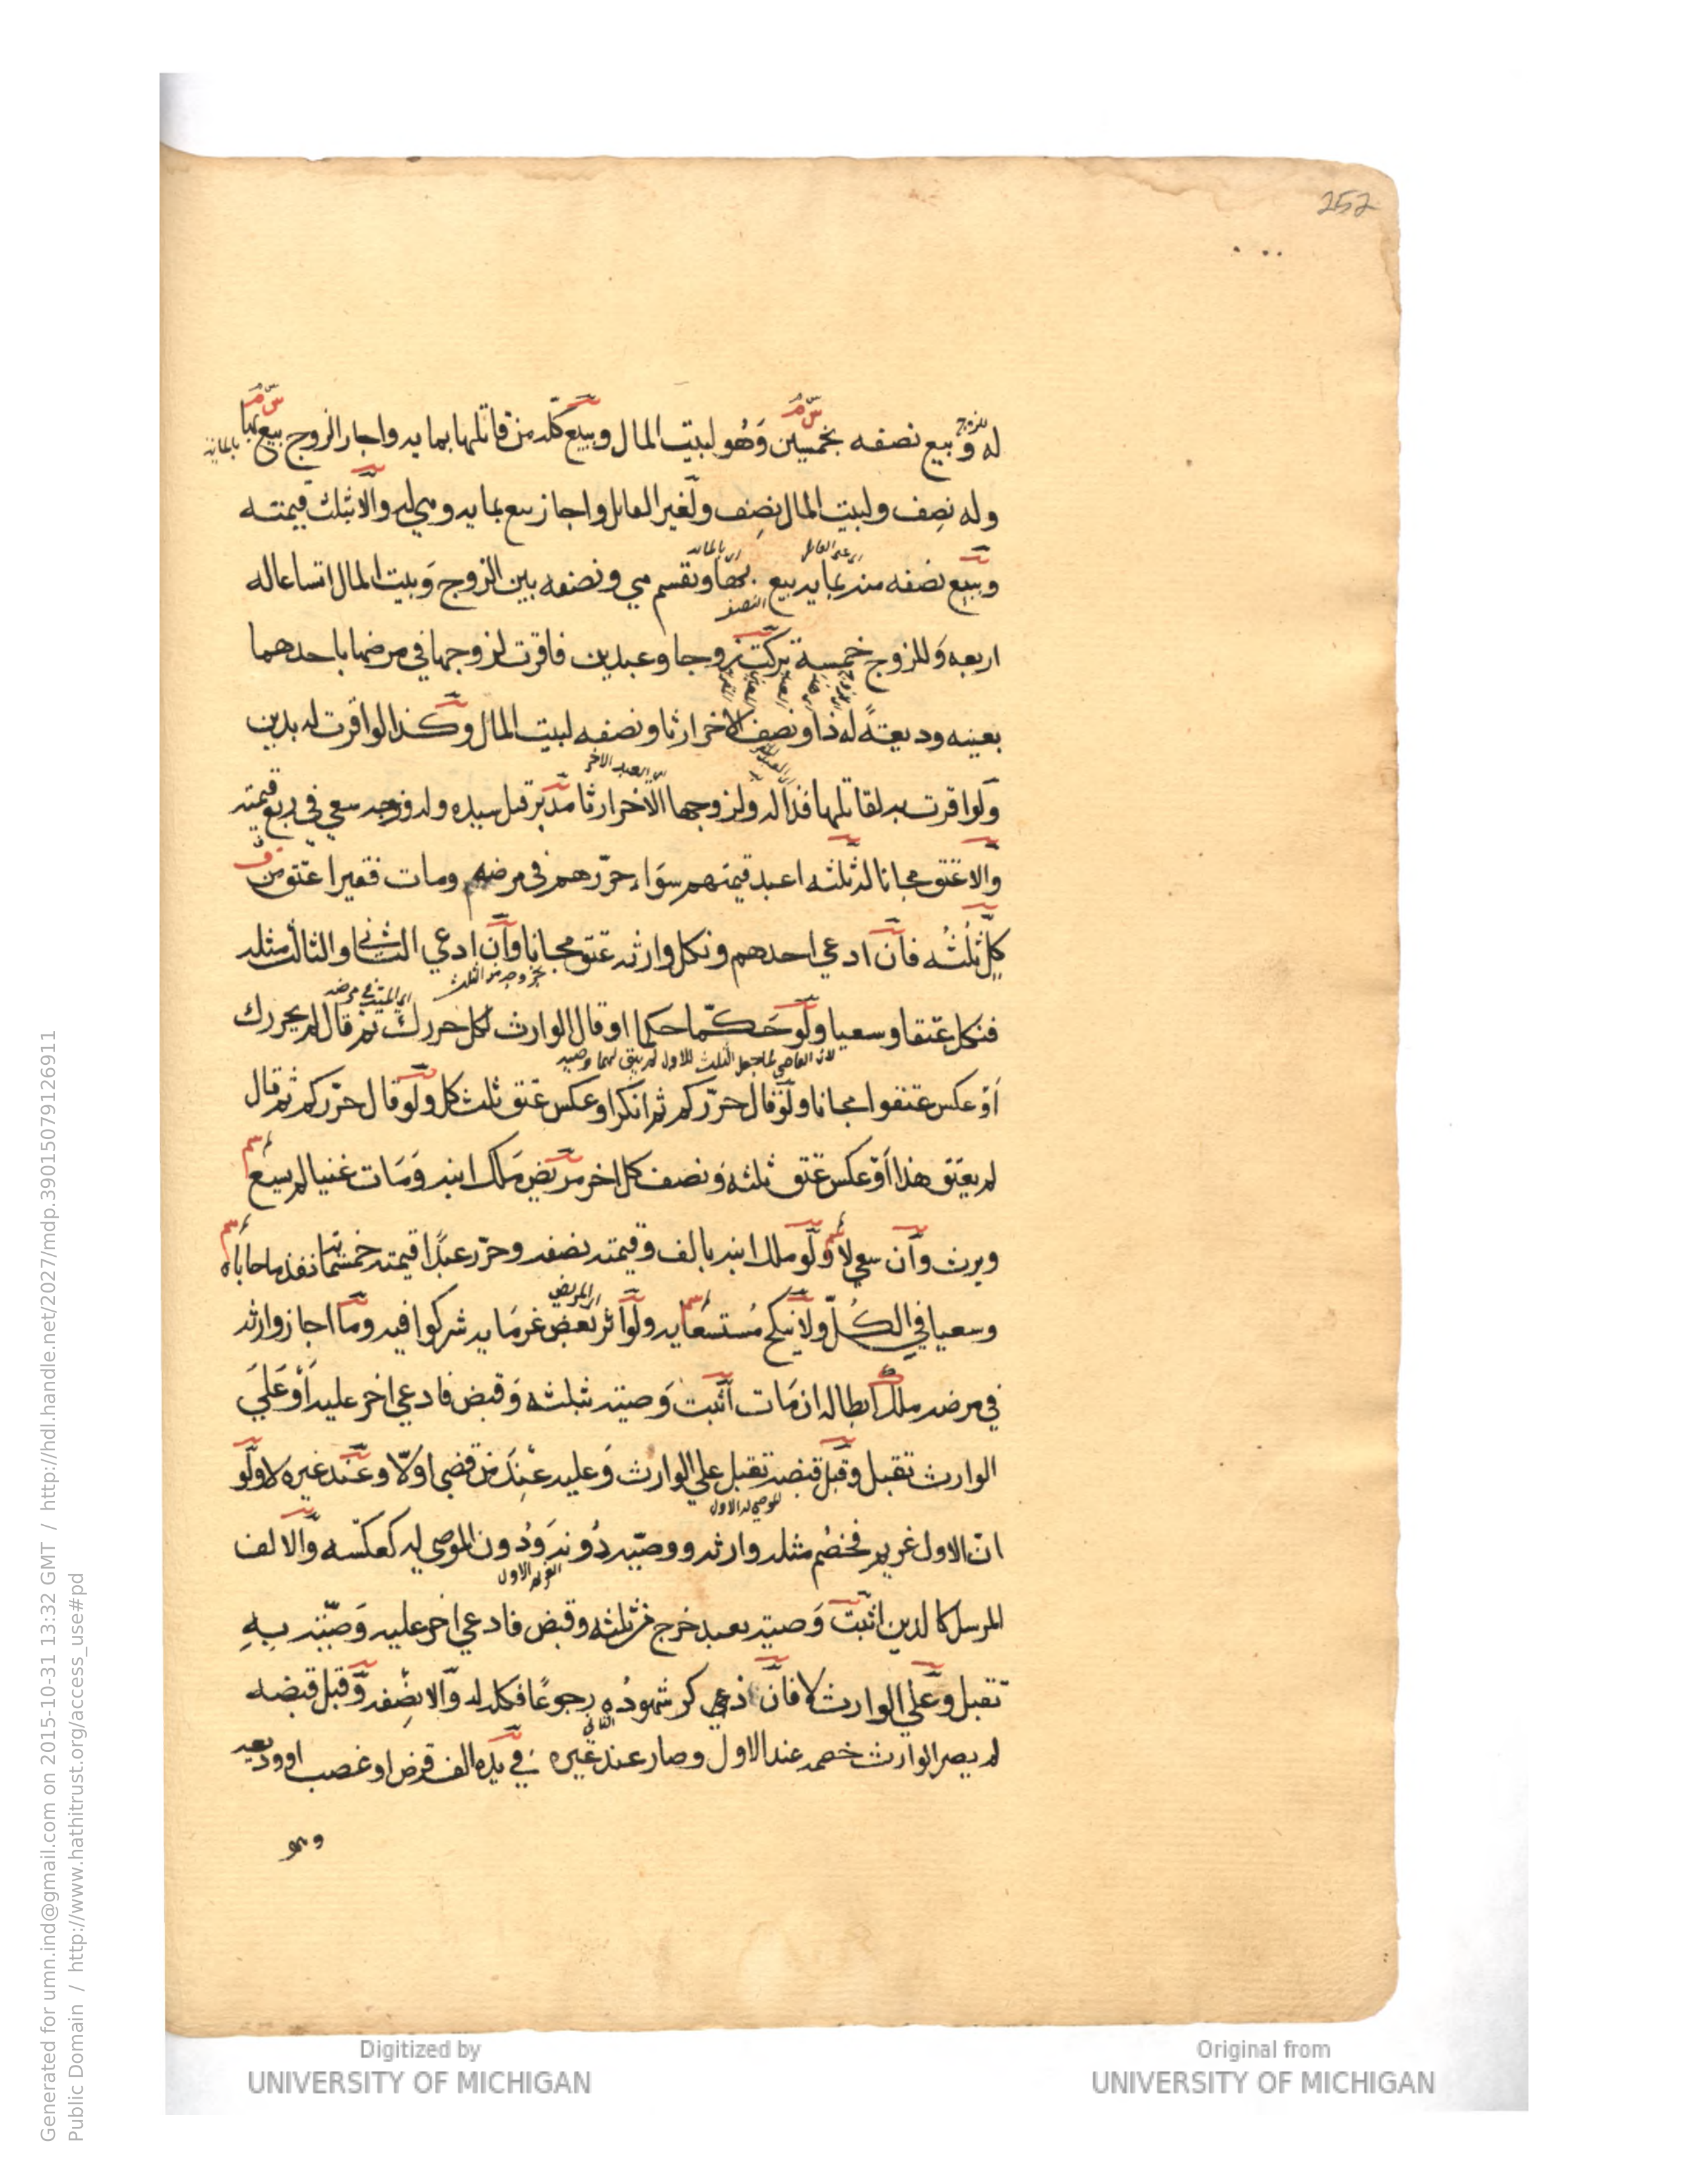 252
له وبيع نصفه بخمسين وهو لبيت المال وبيع كله من قاتلها بمايه واجاز الزوج بيع
وله نصف ولبيت المال نصف ولغير القاتل واجاز بيع بمايه وهي له والا ثلث قيمته
وبيع نصفه منه بمايه بيع وتقسم هي ونصفه بين الزوج وبيت المال اتساعا له
اربعه وللزوج خمسة تركت زوجا وعبدين فاقرت لزوجها في مرضها باحدهما
بعينه وديعةً له ذا ونصف الاخر ارثا ونصفه لبيت المال وكذا لو اقرت له بدين
ولو اقرت به لقاتلها فذا له ولزوجها الاخر ارثا مدبّر قتل سيده وله زوجه سعي في ربع قيمته
والا عتق مجانا له ثلثه اعبد قيمتهم سواء حرّرهم في مرضه ومات فقيرا عتق من
كلٍّ ثلثُه فان ادعي احدهم ونكل وارثه عتق مجانا وان ادعي الثاني او الثالث مثله
فنكل عتقا وسعيا ولو حكّما حكما او قال الوارث لكل حررك ثم قال لم يحررك
او عكس عتقوا مجانا ولو قال حرّركم ثم انكر او عكس عتق ثلث كل ولو قال حرّركم ثم قال
لم يعتق هذا او عكس عتق ثلثه ونصف كل اخر مريض ملك ابنه ومات غنيا لم يسع
ويرث وان سعي لا ولو ملك ابنه بالف وقيمته نصفه وحرّر عبدًا قيمته خمسماية نفذ ما حاباه
وسعيا في الكُلّ ولا نكح مُستسعايه ولو اثر بعض غرمايه شركوا فيه وما اجاز وارثه
في مرضه ملك ابطاله ان مات اثبت وصيته بثلثه وقبض فادعي اخر عليه او علي
الوارث تقبل وقبل قبضه تقبل علي الوارث وعليه عند من قضي اولا وعند غيره لا ولو
انّ الاول غريم فخصم مثله وارثه ووصيّه دُونه ودُون الموصي له كعكسه والالف
المرسل كالدين اثبت وصيته بعبد خرج من ثلثه وقبض فادعي اخر عليه وصيّته بهِ
تقبل وعلي الوارث لا فان ذكر شهودُه رجوعًا فكله له والا نصفه وقبل قبضه
لم يصر الوارث خصمه عند الاول وصار عند غيره في يده الف قرض او غصب او وديعه
وهو
Generated for umn.ind@gmail.com on 2015-10-31 13:32 GMT / http://hdl.handle.net/2027/mdp.39015079126911
Public Domain / http://www.hathitrust.org/access_use#pd
Digitized by
UNIVERSITY OF MICHIGAN
Original from
UNIVERSITY OF MICHIGAN